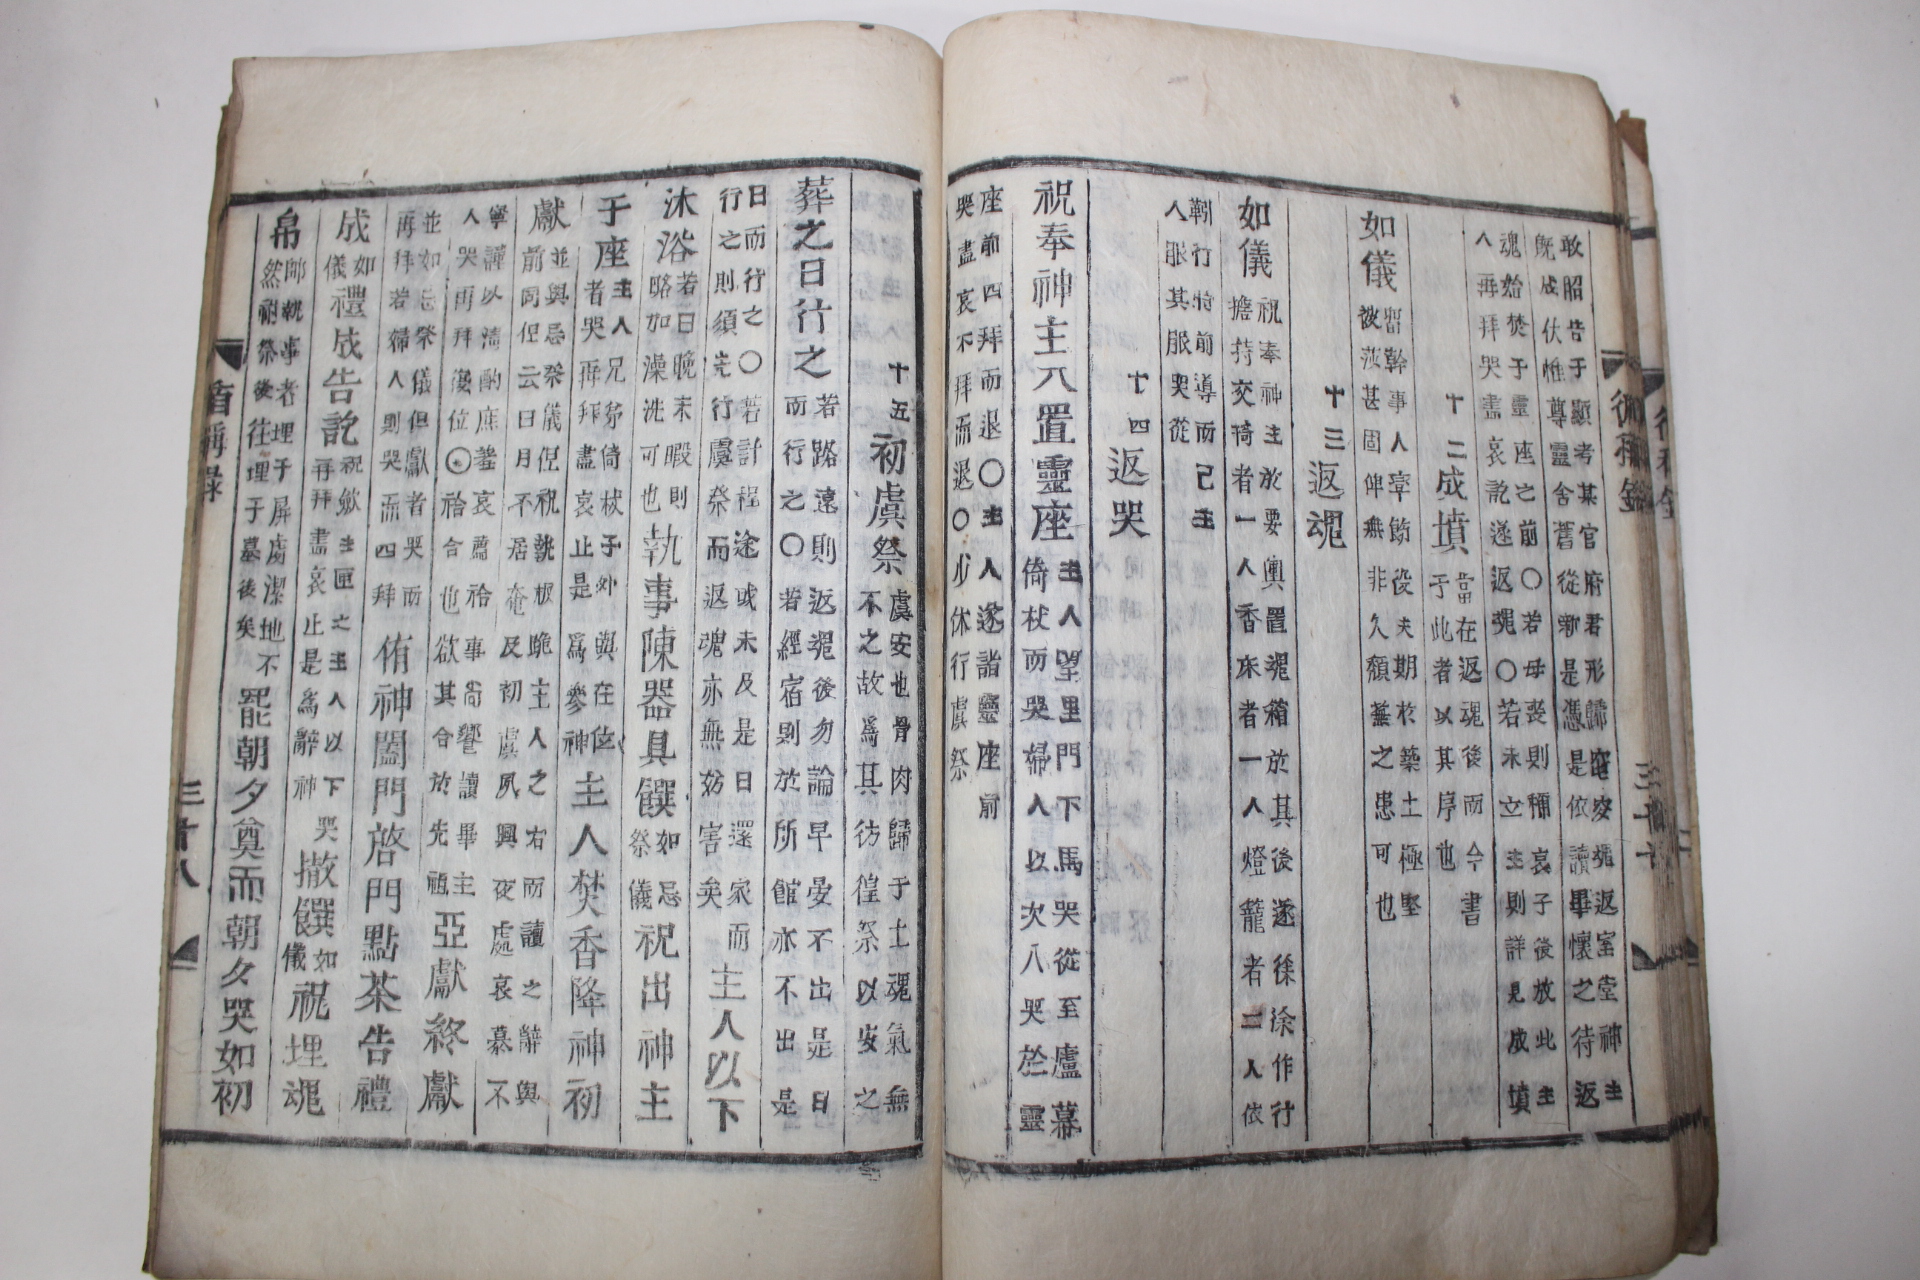 敢昭告于顯考某官府君形歸窀穸魂返室堂神主
旣成伏惟尊靈舍舊從新是憑是依讀畢懷之待返
魂始焚于靈座之前〇若母喪則稱哀子後放此主
人再拜哭盡哀訖遂返魂〇若未立主則詳見成墳
十二成墳當在返魂後而今書
于此者以其序也
如儀
幹事人宰飭役夫期於築土極堅
被莎甚固俾無非久頹蕪之患可也
十三返魂
如儀祝奉神主於要輿置魂箱於其後遂徐徐作行
擔持交椅者一人香床者一人燈籠者二人依
靷行時前導而已主
人服其服哭從
十四返哭
祝奉神主入置靈座主人望里門下馬哭從至廬幕
倚杖而哭婦人以次入哭於靈
座前四拜而退〇主人遂詣靈座前
哭盡哀不拜而退〇少休行虞祭
十五初虞祭虞安也骨肉歸于土魂氣無
不之故爲其彷徨祭以安之
葬之日行之若路遠則返魂後勿論早晏不出是日
而行之〇若經宿則於所館亦不出是
日而行之〇若計程途或未及是日還家而
行之則須先行虞祭而返魂亦無妨害矣
主人以下
沐浴若日晩未暇則
略加澡洗可也
執事陳器具饌如忌
祭儀
祝出神主
于座主人兄弟倚杖于外與在位
者哭再拜盡哀止是爲參神
主人焚香降神初
獻並與忌祭儀但祝執板跪主人之右而讀之辭與
前同但云日月不居奄及初虞夙興夜處哀慕不
寧謹以淸酌庶羞哀薦祫事尙饗讀畢主
人哭再拜復位〇祫合也欲其合於先祖
亞獻終獻
並如忌祭儀但獻者哭而
再拜若婦人則哭而四拜
侑神闔門啓門點茶告禮
成如
儀
禮成告訖祝斂主匣之主人以下哭
再拜盡哀止是爲辭神
撤饌如
儀
祝埋魂
帛祝執事者埋于屛處潔地不
然祔祭後往埋于墓後矣
罷朝夕奠而朝夕哭如初
三十八